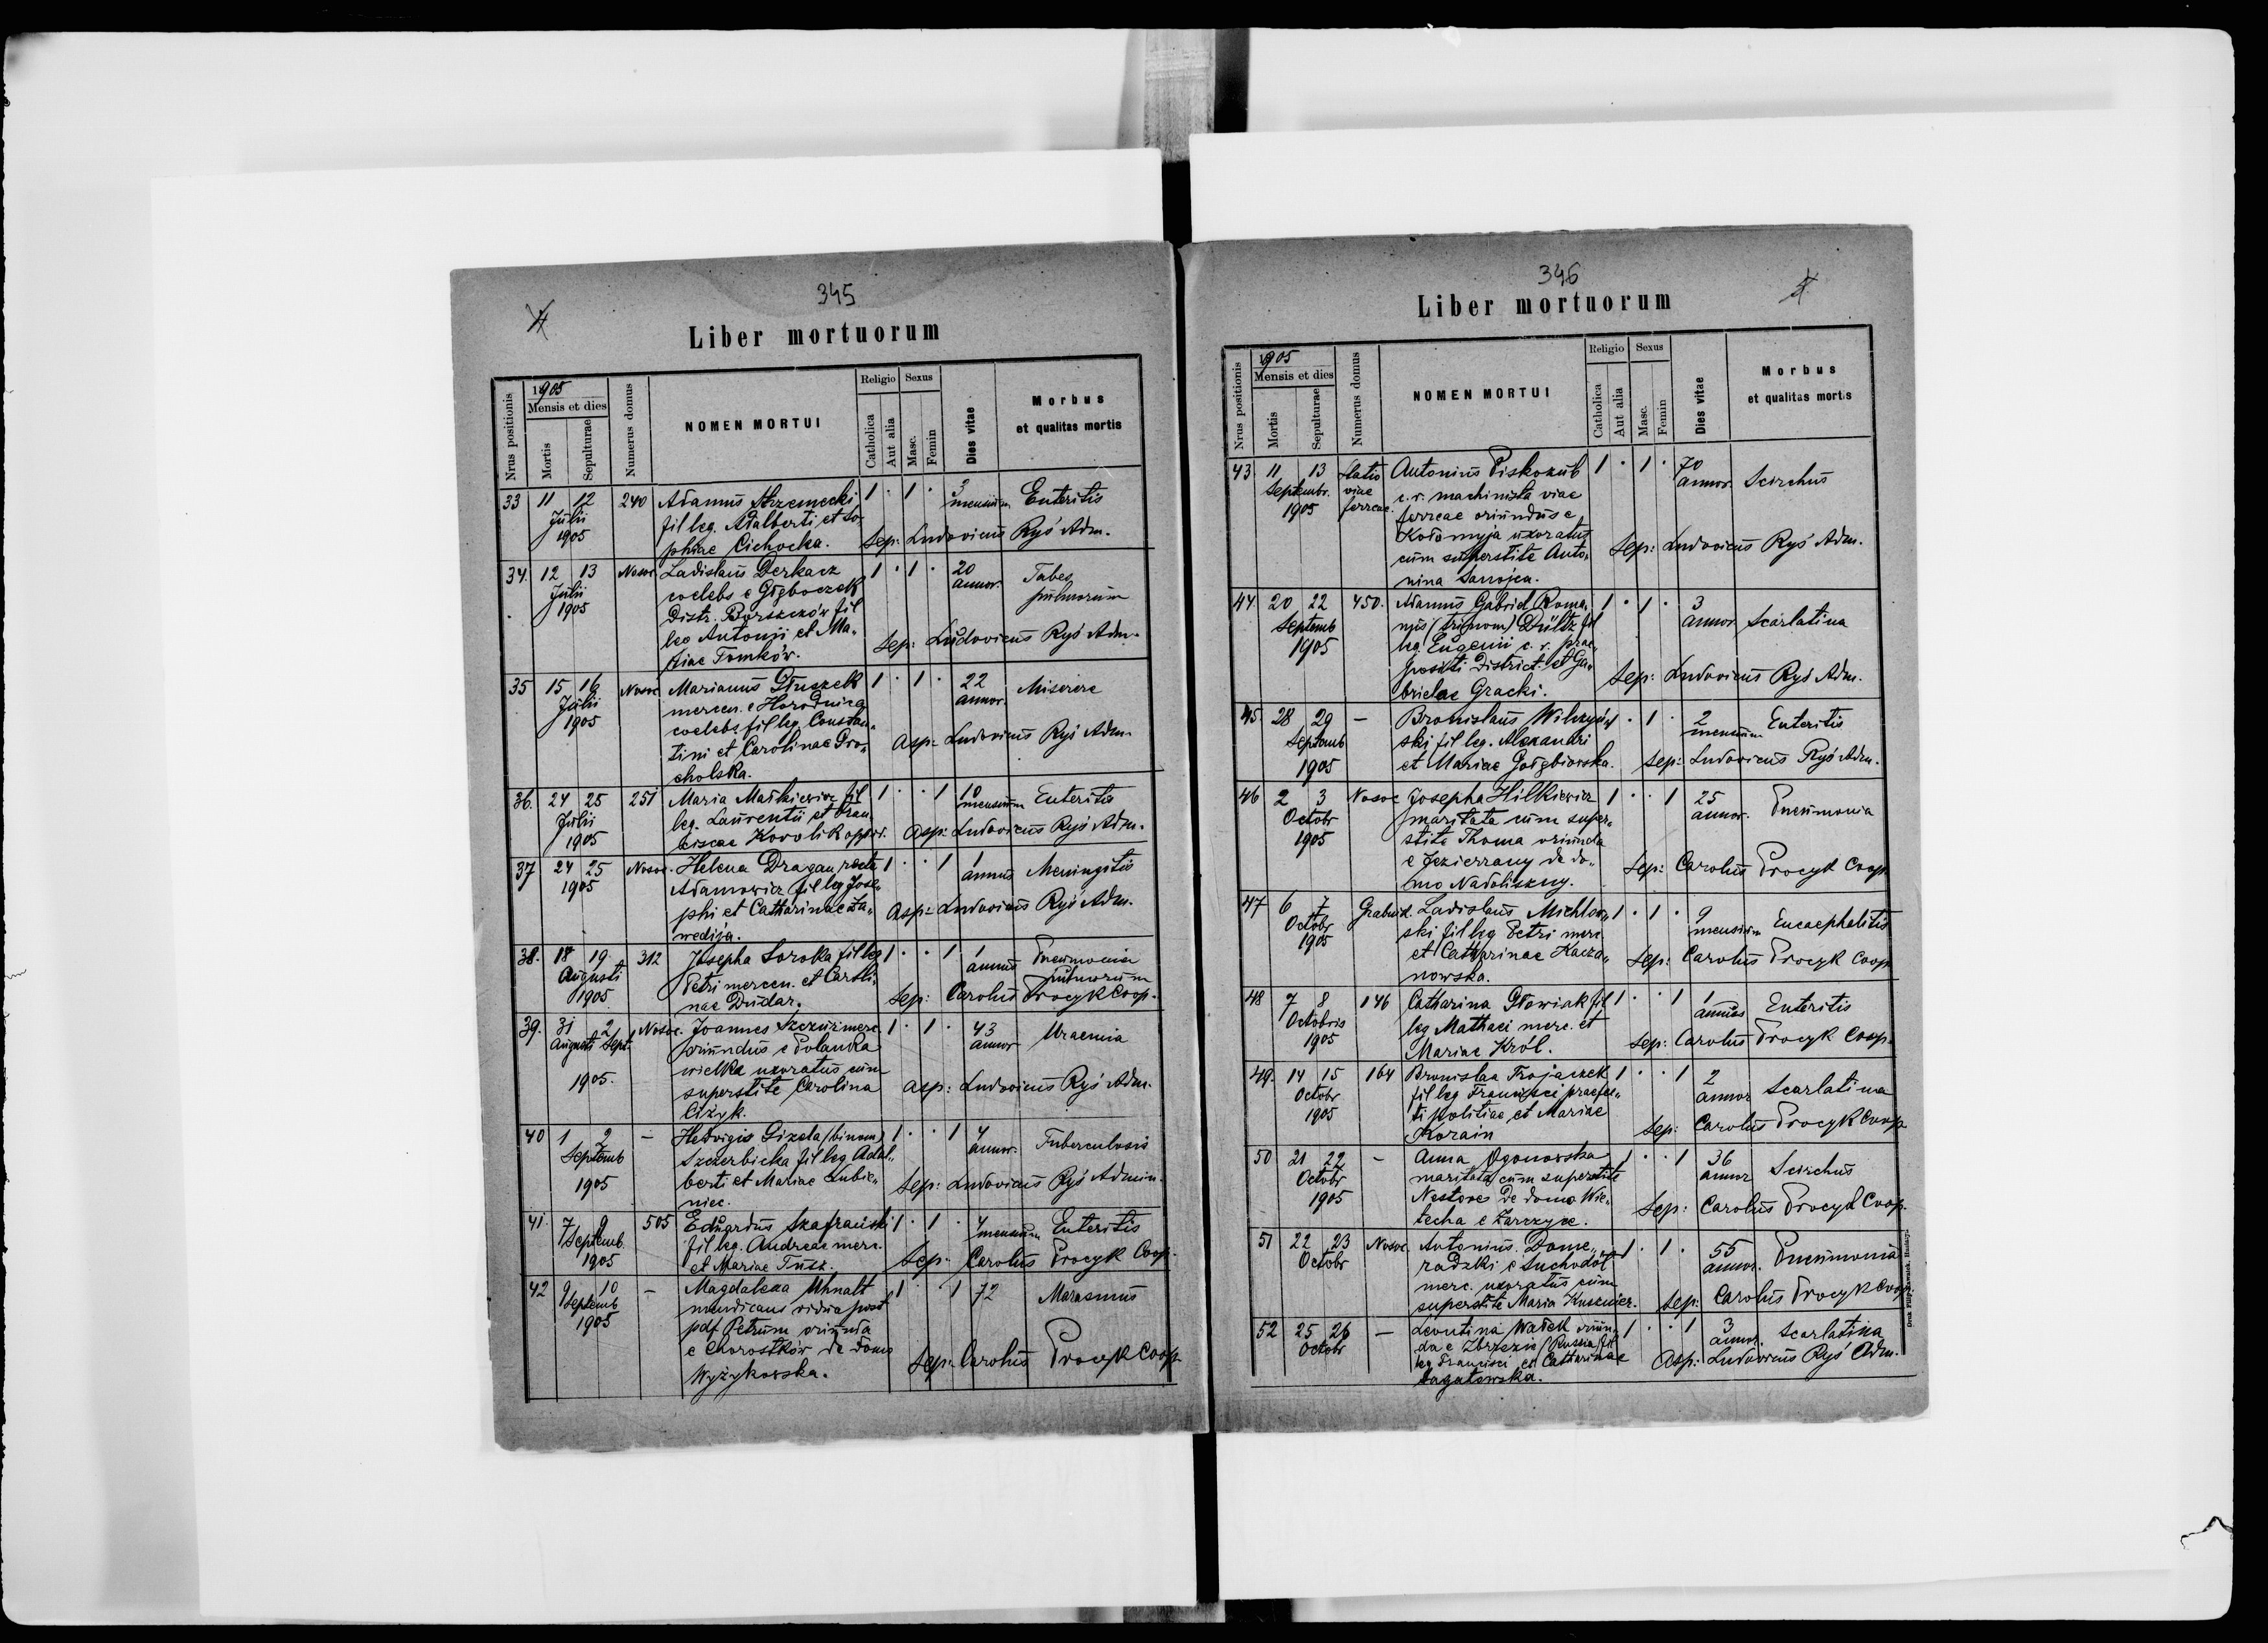 345
Liber mortuorum
Nrus positionis
1905
Mensis et dies
Mortis
Sepulturae
Numerus domus
NOMEN MORTUI
Religio
Catholica
Aut alia
Sexus
Masc.
Femin
Dies vitae
Morbus
et qualitas mortis
33 11 12 240 Adamus Strzemecki 1 . 1 . 3 Enteritis
Julii fil leg. Adalberti et So- mensium
1905 phiae Cichocka. Sep: Ludovicus Ryś Adm.
34. 12 13 Nosoc. Ladislaus Derkacz 1 . 1 . 20 Tabes
Julii coelebs e Głęboczek annor. pulmorum
1905 Distr. Borszczów fil
leg Antonii et Ma„ Sep: Ludovicus Ryś Adm.
riae Tomków.
35 15 16 Nosoc Marianus Dłuszek 1 . 1 . 22 Miserere
Julii mercen. e Horodnica annor.
1905 coelebs fil leg. Constan„
tini et Carolinae Gro„ Asp: Ludovicus Ryś Adm.
cholska.
36. 24 25 251 Maria Maśkiewicz fil 1 . . 1 10 Enteritis
Julii leg. Laurentii et Fran„ mensium
1905 ciscae Korolik Asp: Ludovicus Ryś Adm.
37 24 25 Nosoc. Helena Dragan recte 1 . . 1 1 Meningitis
1905 Adamowicz fil leg Jose„ annus
phi et Catharinae Za„ Asp: Ludovicus Ryś Adm.
wedija.
38. 18 19 312 Josepha Soroka fil leg 1 . . 1 1 Pneumonia
Augusti Petri mercen. et Caroli„ annus pulmorum
1905 nae Dudar. Sep: Carolus Procyk Coop.
39. 31 2 Nosoc. Joannes Szczur merc 1 . 1 . 43 Uraemia
Augusti Sept. oriundus e Polanka annor
1905. wielka uxoratus cum
superstite Carolina Asp: Ludovicus Ryś Adm.
Ciżyk.
40 1 2 – Hedvigis Gizela (binom) 1 . . 1 4 Tuberculosis
Septemb Szczerbicka fil leg Adal„ annor.
1905 berti et Mariae Lubie„ Sep: Ludovicus Ryś Admin.
niec.
41. 7 9 505 Eduardus Szafrański 1 . 1 . 4 Enteritis
Septemb. fil leg. Andreae merc. mensium
1905 et Mariae Sep: Carolus Procyk Coop.
42 9 10 – Magdalena Uhnalt 1 . 1 72 Marasmus
Septemb mendicans vidua post
1905 pdf Petrum oriunda
e Chorostków de domo Sep: Carolus Procyk Coop.
Wyżykowska.
346
Liber mortuorum
Nrus positionis
1905
Mensis et dies
Mortis
Sepulturae
Numerus domus
NOMEN MORTUI
Religio
Catholica
Aut alia
Sexus
Masc.
Femin
Dies vitae
Morbus
et qualitas mortis
43 11 13 Statio Antonius Piskozub 1 . 1 . 70 Scirchus
Septembr. viae c. r. machinista viae annor.
1905 ferreae. ferreae oriundus e
Kołomyja uxoratus
cum superstite Anto„ Sep: Ludovicus Ryś Adm.
nina
44. 20 22 450. Adamus Gabriel Roma„ 1 . 1 . 3 Scarlatina
Septemb nus (trinom) Dültz fil annor
1905 leg. Eugenii c. r. prae„
positi District. et Ga„ Sep: Ludovicus Ryś Adm.
brielae Gracki.
45. 28 29 – Bronislaus Wilczyń 1 . 1 . 2 Enteritis
Septemb ski fil leg. Alexandri mensium
1905 et Mariae Gołębiowska. Sep: Ludovicus Ryś Adm.
46 2 3 Nosoc Josepha Hilkiewicz 1 . . 1 25 Pneumonia
Octobr maritata cum super„ annor.
1905 stite Thoma oriunda
e Jezierzany de do„ Sep: Carolus Procyk Coop.
mo Nadoliszny.
47 6 7 Grabnik. Ladislaus Michłow„ 1 . 1 . 9 Encaephelitis
Octobr ski fil leg Petri merc. mensium
1905 et Catharinae Kacza„ Sep: Carolus Procyk Coop.
nowska.
48 7 8 146 Catharina Głowiak fil 1 . . 1 1 Enteritis
Octobris leg Mathaei merc. et annus
1905 Mariae Król. Sep: Carolus Procyk Coop.
49. 14 15 164 Bronislaa Trojaczek 1 . . 1 2 Scarlatina
Octobr fil leg Francisci praefec„ annor
1905 ti politiae et Mariae Sep: Carolus Procyk Coop
Korain
50 21 22 – Anna Ogonowska 1 . . 1 36 Scirchus
Octobr maritata cum superstite annor
1905 Nestores de domo Wie„ Sep: Carolus Procyk Coop.
techa e Zarzyce.
51 22 23 Nosoc. Antonius Dome„ 1 . 1 . 55 Pneumonia
Octobr radzki e Suchodoł annor.
merc. uxoratus cum
superstite Maria Kusznier. Sep: Carolus Procyk Coop.
52 25 26 – Leontina Wałek oriun„ 1 . . 1 3 Scarlatina
Octobr da e Zbrzezie (Russia) fil annor.
leg Francisci et Catharinae Asp: Ludovicus Ryś Adm.
Bagatowska.